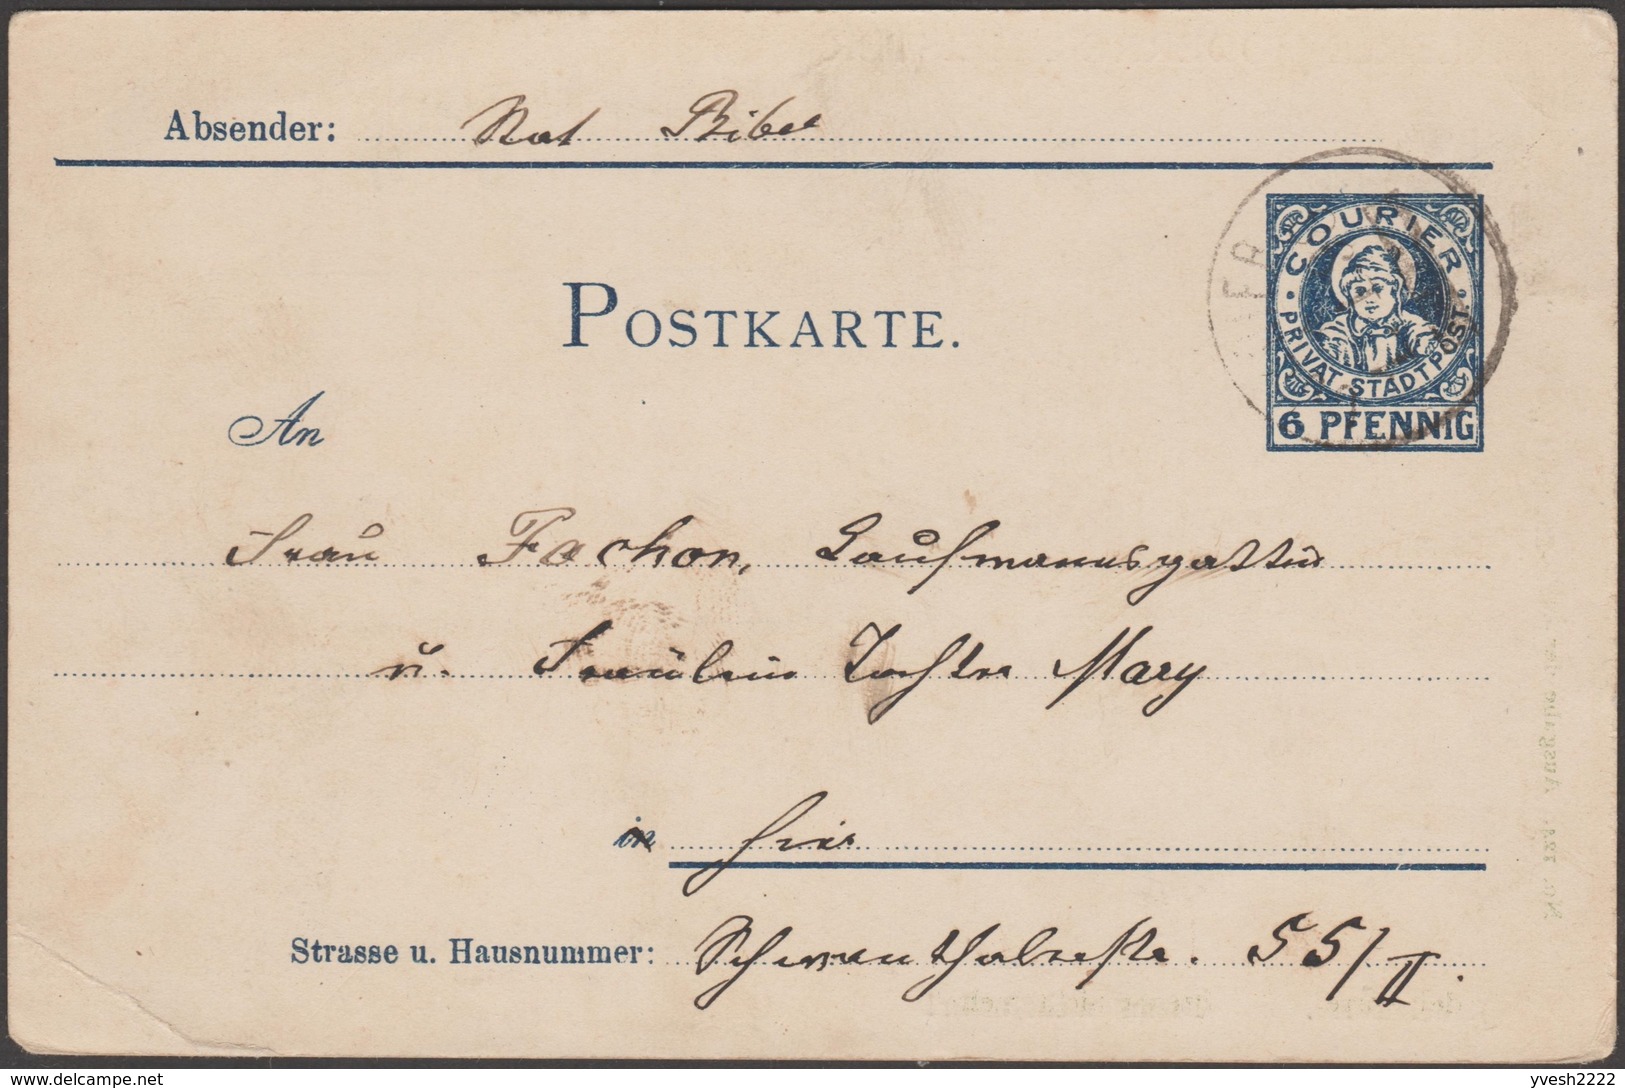 Absender: Nat Bibel
COURIER
PRIVAT-STADTPOST
6 PFENNIG
POSTKARTE.
An
Frau Fachon, Kaufmannsgattin
u. Fräulein Tochter Mary
in hier
Strasse u. Hausnummer: Schwanthalerstr. 55/II.
delcampe.net
yvesh2222